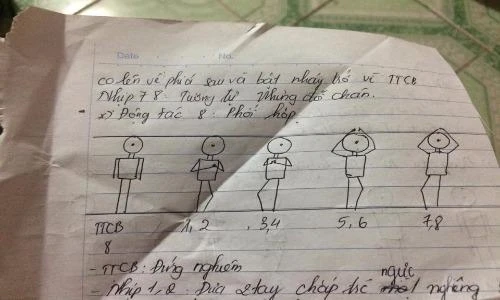 Date No.
co lên về phía sau và bật nhảy trở về TTCB
Nhịp 7 8: Tương tự nhưng đổi chân.
*) Động tác 8: Phối hợp.
TTCB 1, 2 , 3,4 5, 6 7,8
8
- TTCB: Đứng nghiêm
ngực
- Nhịp 1,2: Đưa 2 tay chấp trc nghiêng